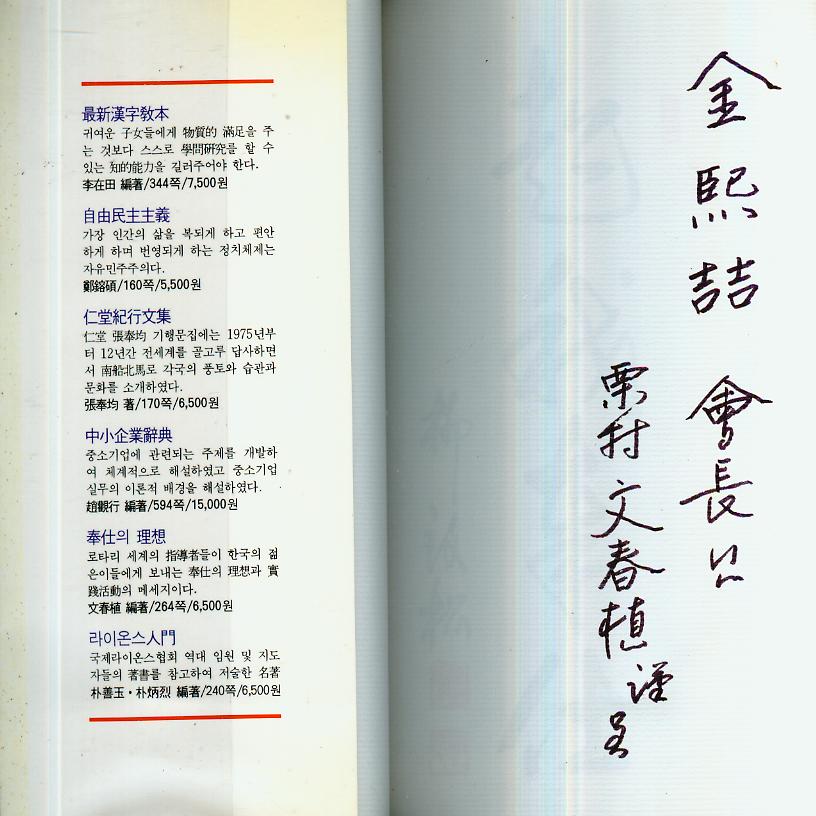 最新漢字敎本
귀여운 子女들에게 物質的 滿足을 주
는 것보다 스스로 學問硏究를 할 수
있는 知的能力을 길러주어야 한다.
李在田 編著/344쪽/7,500원
自由民主主義
가장 인간의 삶을 복되게 하고 편안
하게 하며 번영되게 하는 정치체제는
자유민주주의다.
鄭鎔碩/160쪽/5,500원
仁堂紀行文集
仁堂 張奉均 기행문집에는 1975년부
터 12년간 전세계를 골고루 답사하면
서 南船北馬로 각국의 풍토와 습관과
문화를 소개하였다.
張奉均 著/170쪽/6,500원
中小企業辭典
중소기업에 관련되는 주제를 개발하
여 체계적으로 해설하였고 중소기업
실무의 이론적 배경을 해설하였다.
趙觀行 編著/594쪽/15,000원
奉仕의 理想
로타리 세계의 指導者들이 한국의 젊
은이들에게 보내는 奉仕의 理想과 實
踐活動의 메세지이다.
文春植 編著/264쪽/6,500원
라이온스人門
국제라이온스협회 역대 임원 및 지도
자들의 著書를 참고하여 저술한 名著
朴善玉・朴炳烈 編著/240쪽/6,500원
金熙喆 會長님
栗村 文春植 謹呈